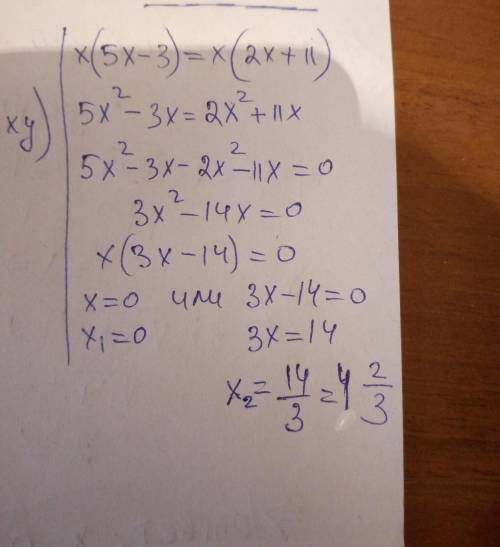 x(5x-3)=x(2x+11)
5x²-3x=2x²+11x
xy)
5x²-3x-2x²-11x=0
3x²-14x=0
x(3x-14)=0
x=0 или 3x-14=0
x₁=0 3x=14
x₂=14/3=4 2/3